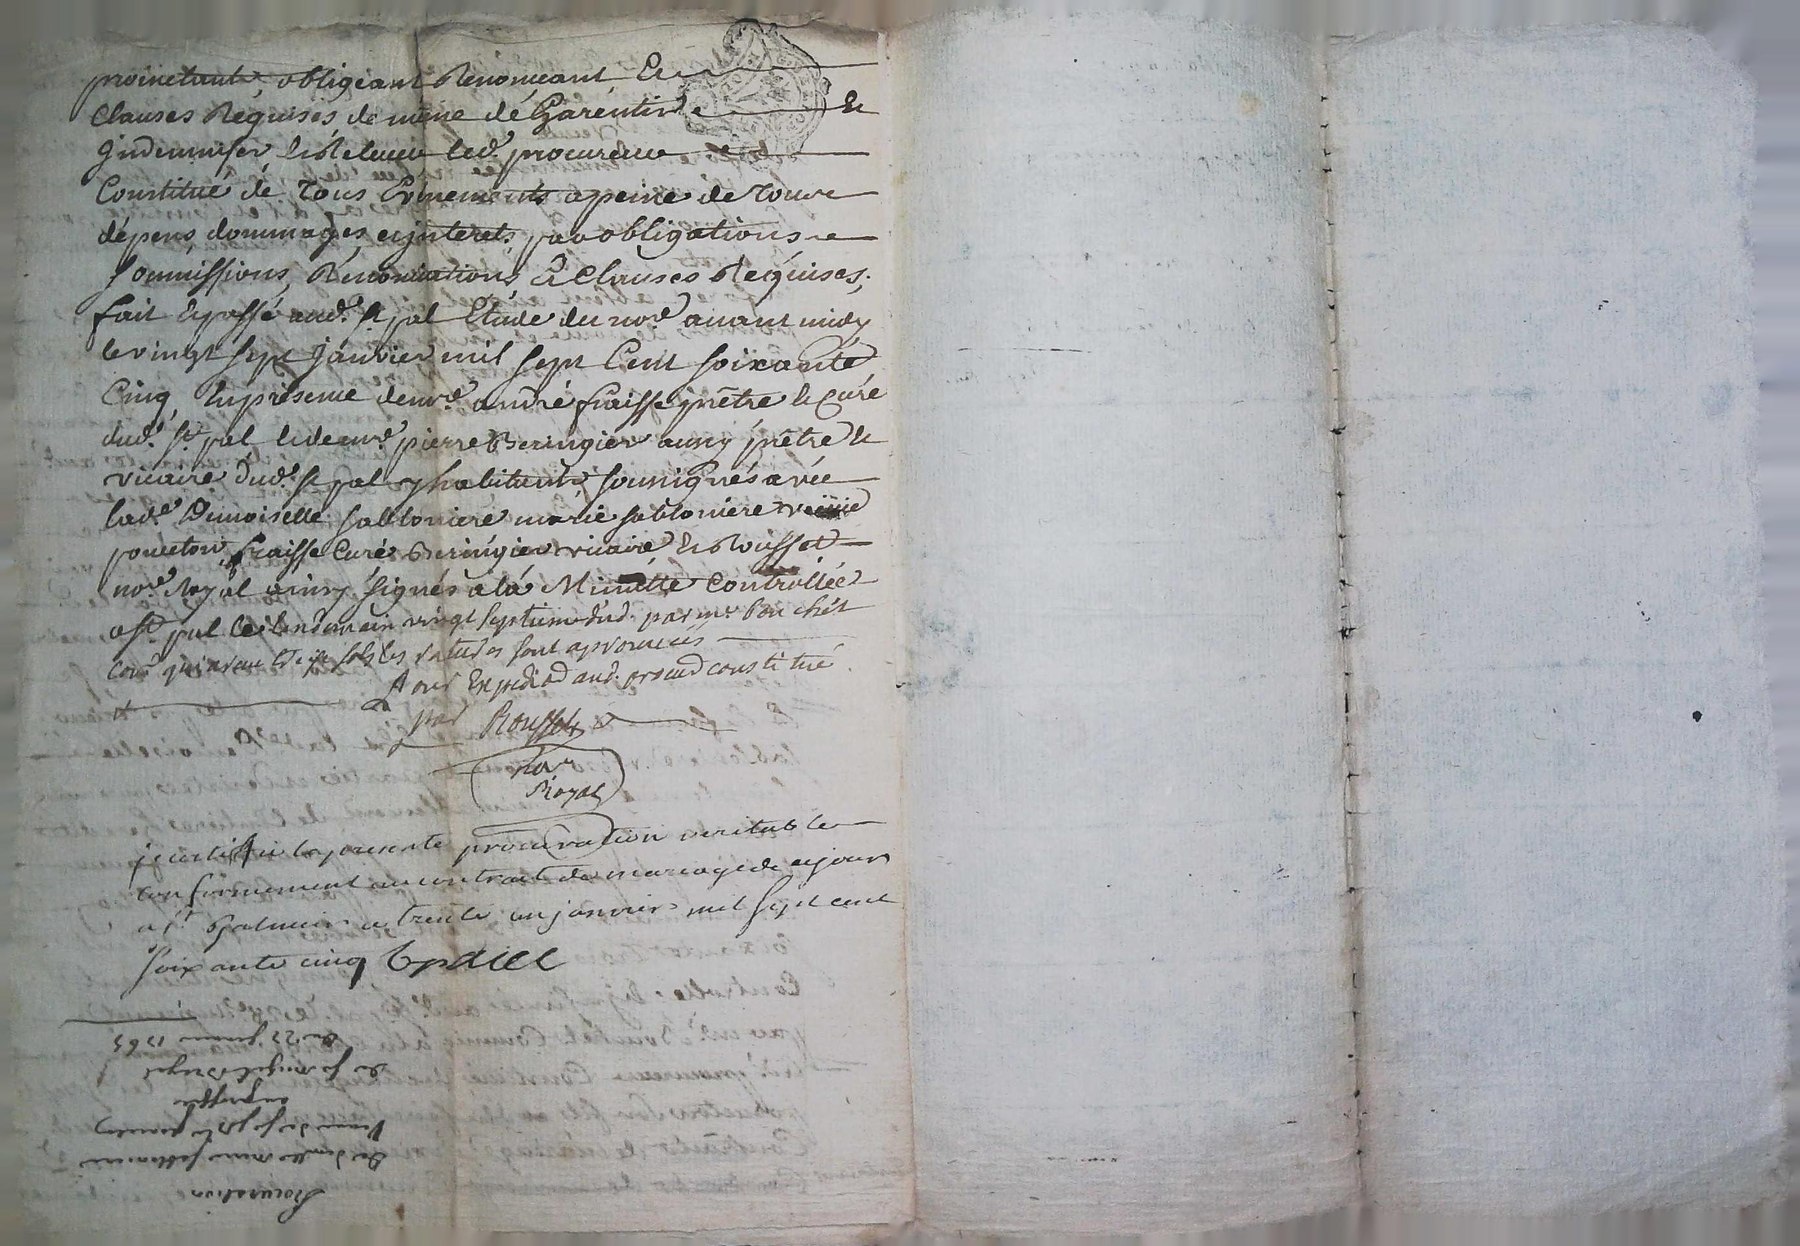 promettants, obligeant Renonceant Et
Clauses Requises de même dé Garentir et
Indemniser Et Relever led. procureur
Constitué dé Tous Evinements a peine de Tous
dépens dommages et jnterets, par obligations
soumissions, Renontiations, & Clauses Requises.
fait Et passé aud. St pal Etude du nore. avant midy
le vingt sept janvier mil sept Cent soixante
Cinq En présence de mre. andré fraisse prêtre & Curé
dud. St pal & de mre. pierre Beringier aussy prêtre &
vicaire dud. St pal y habitants soussignés avec
lad. Demoiselle sablonière marie sablonière veuve
fraisse Curé Beringier vicaire & Rousset
nore. Royal ainsy signés a la Minutte Controllée
a St pal le lendemain vingt septieme dud. par mr. bouchet
les ratures sont aprouvées
Expedié aud. procur. constitué
par Rousset
nore
Royal
je certiffie la presente procuration veritable
conformement au contrait de mariage de ce jour
a St trente un janvier mil sept cent
soixante cinq
Procuration
De demlle marie sablonniere
veuve de
du 27 janvier 1765